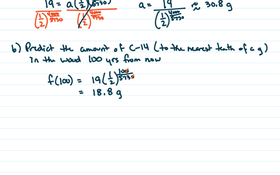 19 = a(1/2)^(4000/5730) a = 19 / (1/2)^(4000/5730) ≈ 30.8 g
(1/2)^(4000/5730) (1/2)^(4000/5730)
b) Predict the amount of C-14 (to the nearest tenth of a g)
in the wood 100 yrs from now
f(100) = 19(1/2)^(100/5730)
= 18.8 g